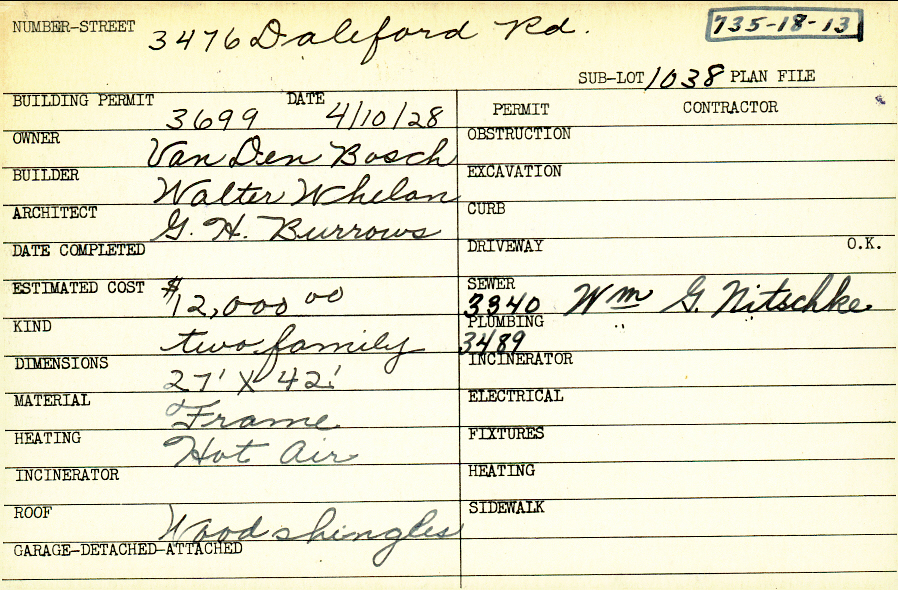 NUMBER-STREET 3476 Daleford Rd. 735-18-13
SUB-LOT 1038 PLAN FILE
BUILDING PERMIT 3699 DATE 4/10/28
PERMIT CONTRACTOR
OWNER Van Den Bosch
OBSTRUCTION
BUILDER Walter Whelan
EXCAVATION
ARCHITECT G. H. Burrows
CURB
DATE COMPLETED
DRIVEWAY O.K.
ESTIMATED COST $12,000 00
SEWER 3340 Wm G. Nitschke
KIND two family
PLUMBING 3489 "
DIMENSIONS 27' X 42'
INCINERATOR
MATERIAL Frame
ELECTRICAL
HEATING Hot Air
FIXTURES
INCINERATOR
HEATING
ROOF Wood shingles
SIDEWALK
GARAGE-DETACHED-ATTACHED